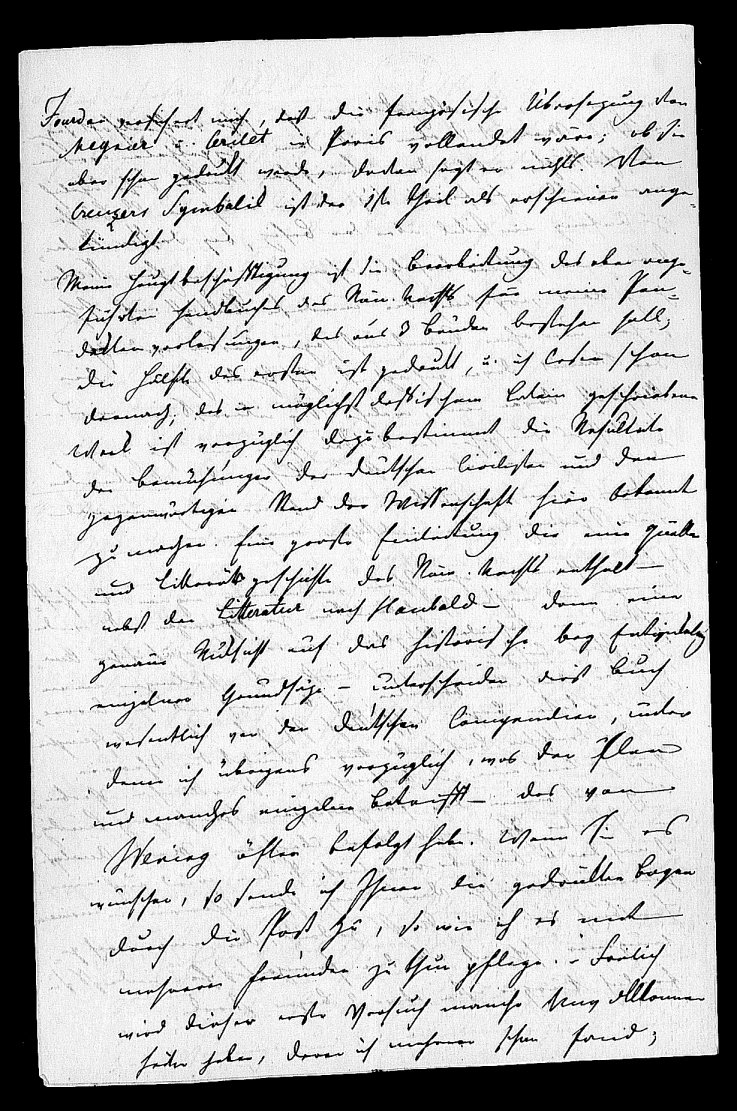 Jourdan versichert mich, daß die französische Übersetzung von
Megnier u. Certet in Paris vollendet wäre; ob sie
aber schon gedruckt werde, davon sagt er nichts. Von
Creuzers Symbolik ist der 1ste Theil als erschienen ange-
kündigt.
Meine Hauptbeschäftigung ist die Bearbeitung des oben ange-
führten Handbuches des Röm. Rechts für meine Pan-
dekten vorlesungen, das aus 3 Bänden bestehen soll;
die Hälfte des ersten ist gedruckt, u. ich lese schon
darnach; das in möglichst classischem Latein geschriebene
Werk ist vorzüglich dazu bestimmt die Resultate
der Bemühungen der deutschen Civilisten und den
gegenwärtigen Stand der Wissenschaft hier bekannt
zu machen. Eine große Einleitung die eine Quellen
und Litterärgeschichte des Röm. Rechts enthält –
nebst der Litteratur nach Haubold – dann eine
genaue Rücksicht auf das historische bey Entwicklung
einzelner Grundsäze – unterscheiden dies Buch
wesentlich von den deutschen Compendien, unter
denen ich übrigens vorzüglich, was den Plan
und manches einzelne betrifft – das von
Wening öfter befolgt habe. Wenn Sie es
wünschen, so sende ich Ihnen die gedruckten Bogen
durch die Post zu, so wie ich es mit
mehreren Freunden zu thun pflege. – Freilich
wird dieser erste Versuch manche Unvollkommen
heiten haben, deren ich mehrere schon fand;